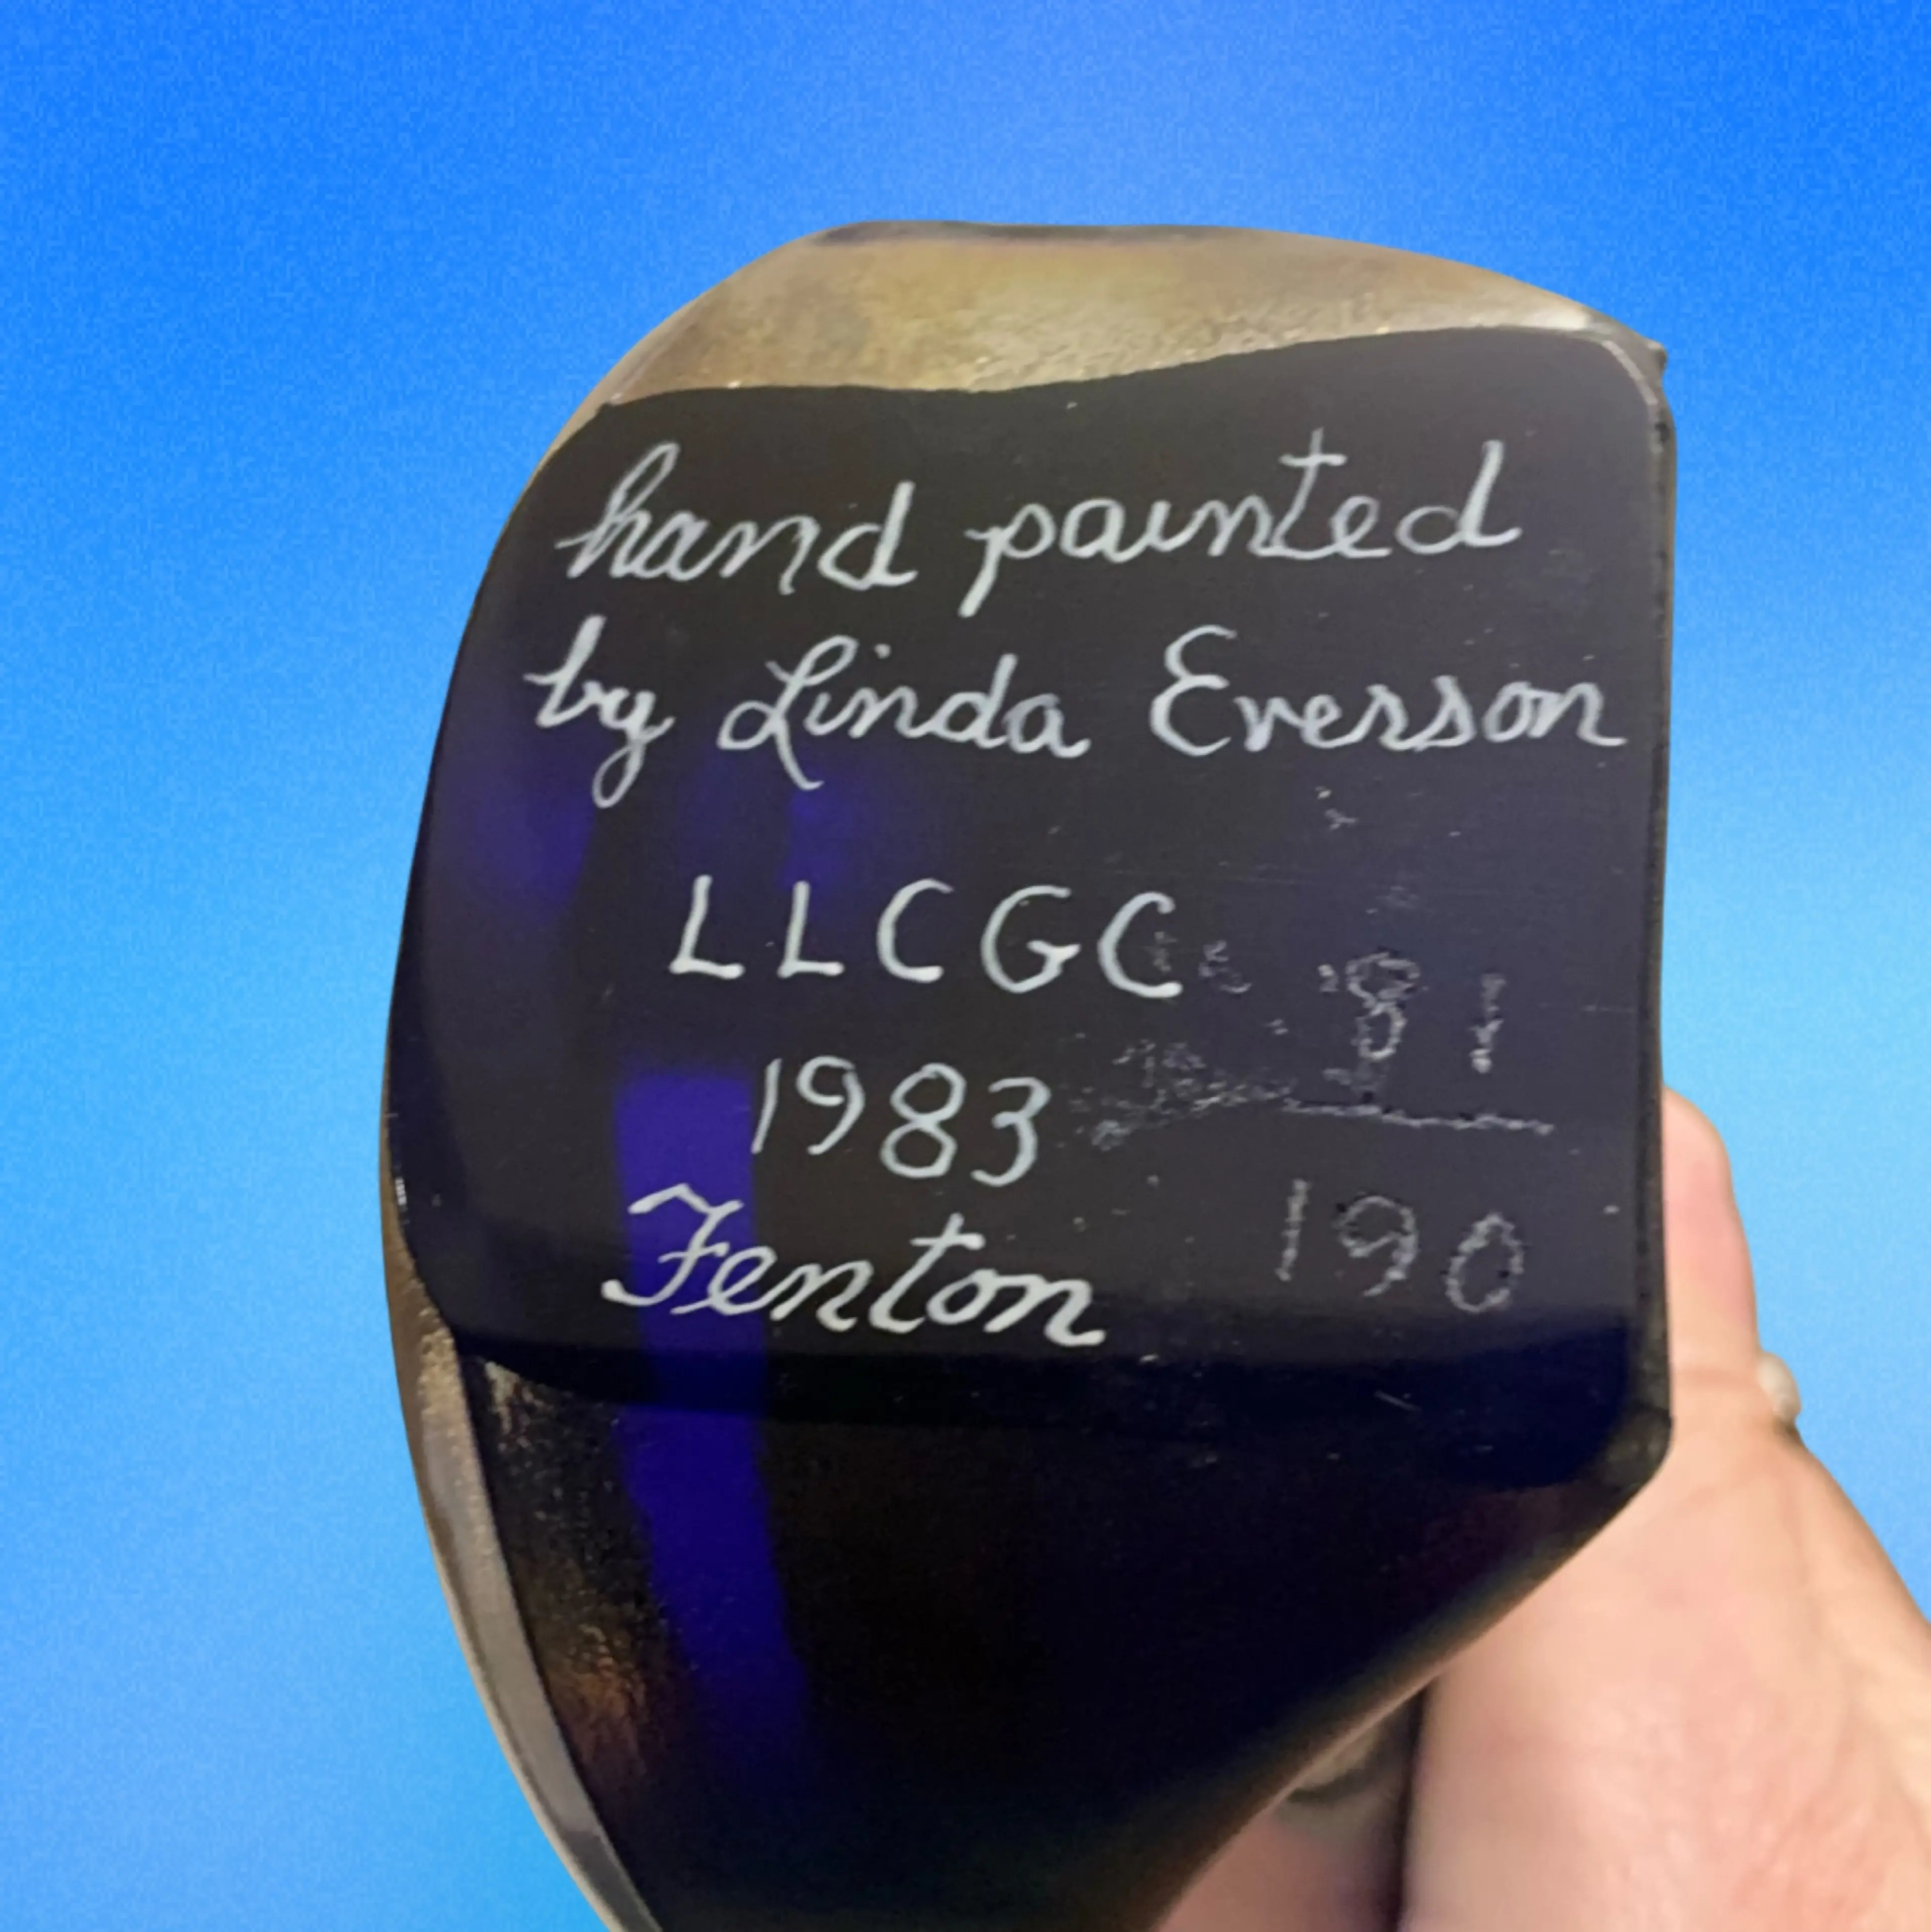 hand painted
by Linda Everson
LLCGC
1983
Fenton
81
190